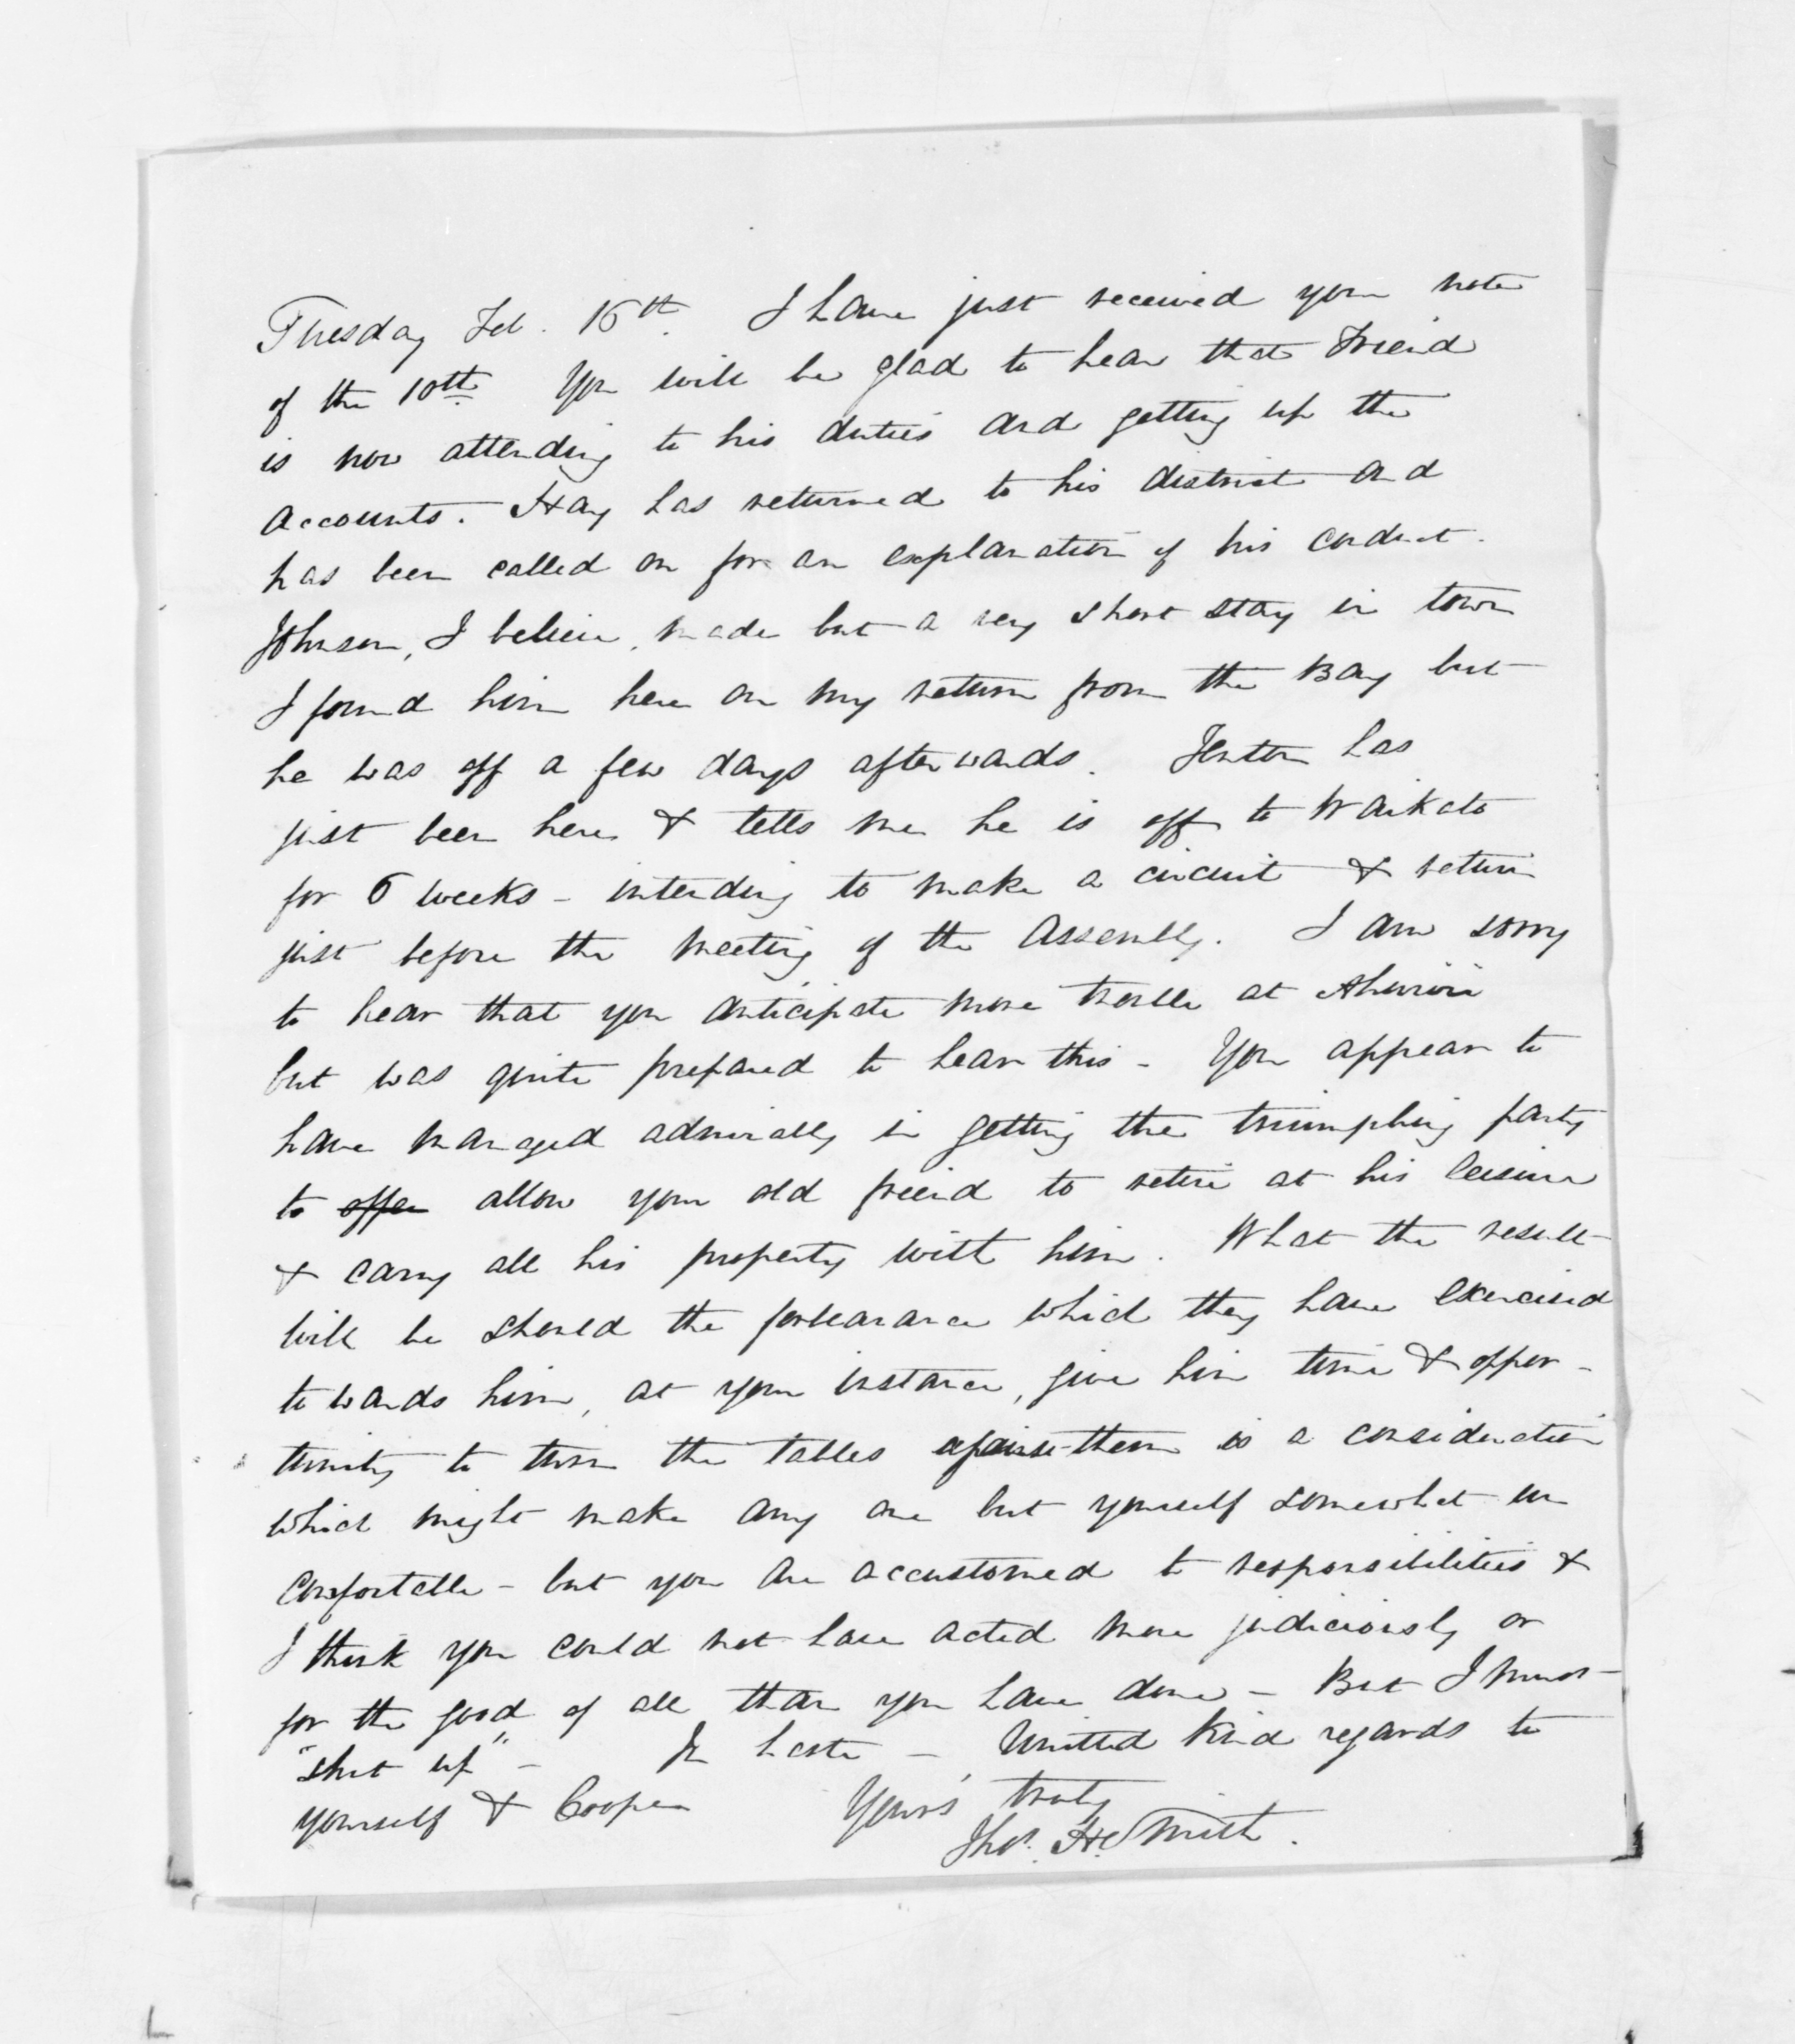 Tuesday Feb. 16th. I have just received your note
of the 10th. You will be glad to hear that Freend
is now attending to his duties and getting up the
accounts. Hay has returned to his district and
has been called on for an explanation of his conduct.
Johnson, I believe, made but a very short stay in town
I found him here on my return from the Bay but
he was off a few days afterwards. Fenton has
just been here & tells me he is off to Waikato
for 6 weeks - intending to make a circuit & return
just before the meeting of the Assembly. I am sorry
to hear that you anticipate more trouble at Ahuriri
but was quite prepared to hear this - You appear to
have managed admirably in getting the triumphing party
to offer allow your old friend to retire at his leisure
& carry all his property with him. What the result
will be should the forbearance which they have exercised
towards him, at your instance, give him time & oppor-
tunity to turn the tables against them is a consideration
which might make any one but yourself somewhat un
comfortable - but you are accustomed to responsibilities &
I think you could not have acted more judiciously or
for the good of all than you have done - But I must
"shut up" - In haste - United kind regards to
yourself & Cooper Yours truly
Thos. H. Smith.